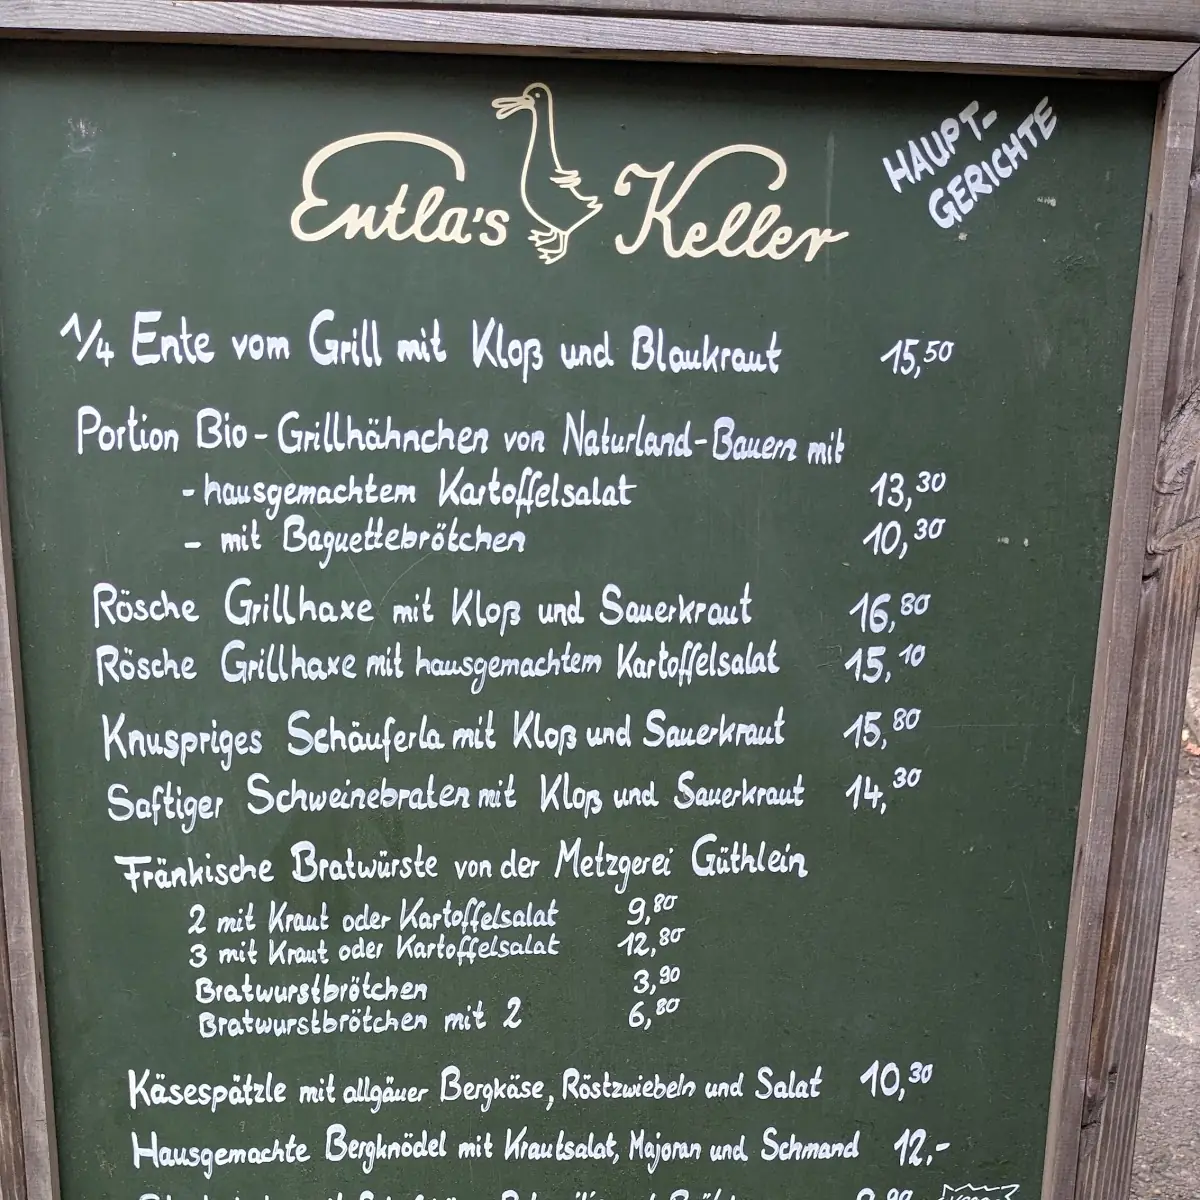 Entla's Keller
HAUPT-
GERICHTE
1/4 Ente vom Grill mit Kloß und Blaukraut 15,50
Portion Bio-Grillhähnchen von Naturland-Bauern mit
- hausgemachtem Kartoffelsalat 13,30
- mit Baguettebrötchen 10,30
Rösche Grillhaxe mit Kloß und Sauerkraut 16,80
Rösche Grillhaxe mit hausgemachtem Kartoffelsalat 15,10
Knuspriges Schäuferla mit Kloß und Sauerkraut 15,80
Saftiger Schweinebraten mit Kloß und Sauerkraut 14,30
Fränkische Bratwürste von der Metzgerei Güthlein
2 mit Kraut oder Kartoffelsalat 9,80
3 mit Kraut oder Kartoffelsalat 12,80
Bratwurstbrötchen 3,90
Bratwurstbrötchen mit 2 6,80
Käsespätzle mit allgäuer Bergkäse, Röstzwiebeln und Salat 10,30
Hausgemachte Bergknödel mit Krautsalat, Majoran und Schmand 12,-